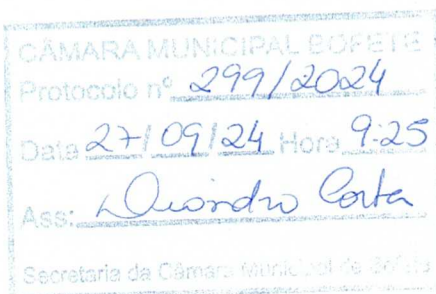 CÂMARA MUNICIPAL BOFETE
Protocolo nº 299/2024
Data 27/09/24 Hora 9:25
Ass:
Secretaria da Câmara Municipal de Bofete